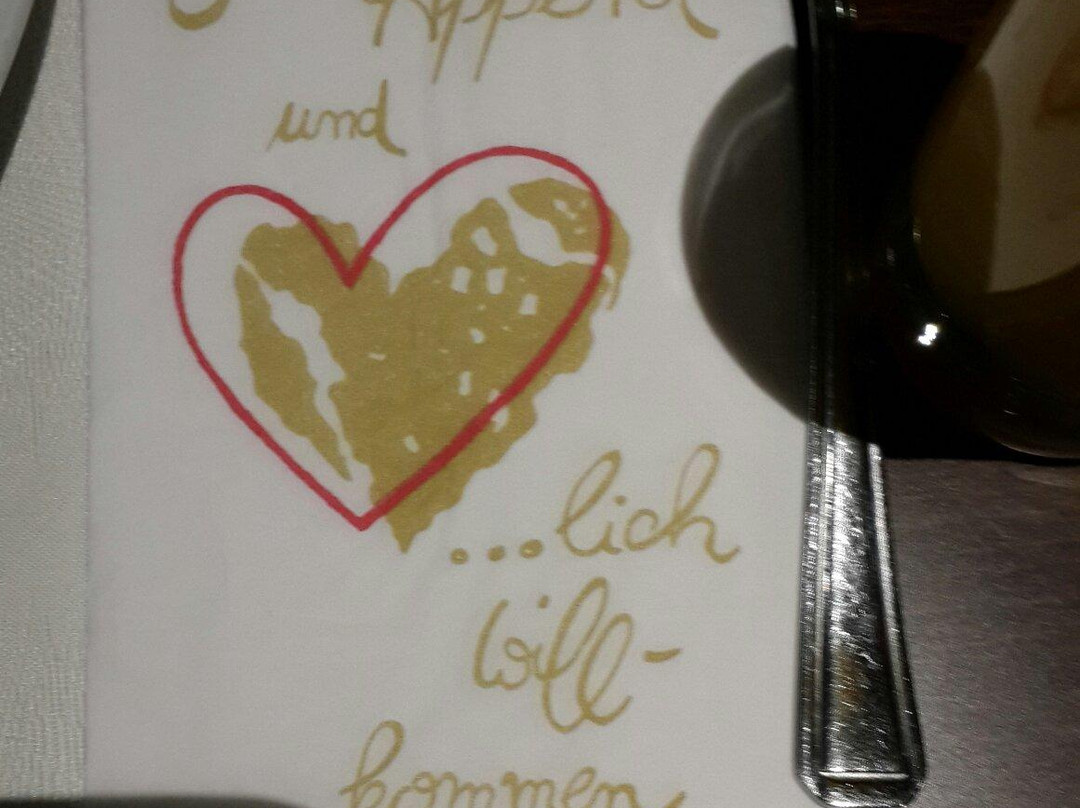 Appetit
und
...lich
Will-
kommen